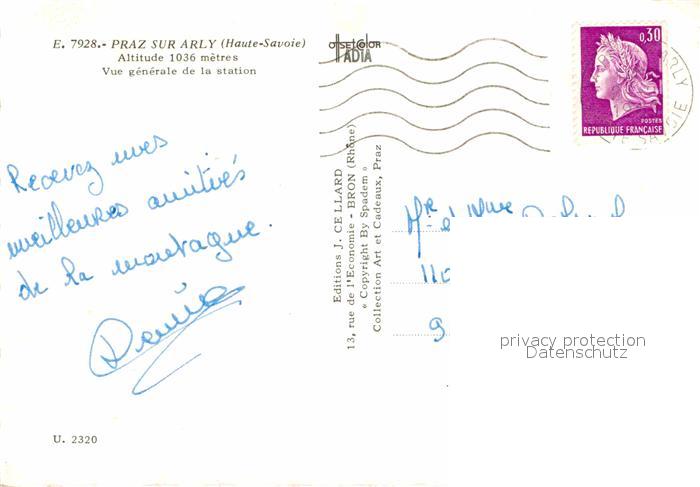 E. 7928.- PRAZ SUR ARLY (Haute-Savoie)
Altitude 1036 mètres
Vue générale de la station
OFFSET COLOR
IADIA
0,30
POSTES
REPUBLIQUE FRANÇAISE
ARLY
SAVOIE
Recevez mes
meilleures amitiés
de la montagne.
Editions J. CELLARD
13, rue de l'Economie, BRON (Rhône)
" Copyright By Spadem "
Collection Art et Cadeaux, Praz
Mr et Mme
11
9
privacy protection
Datenschutz
U. 2320